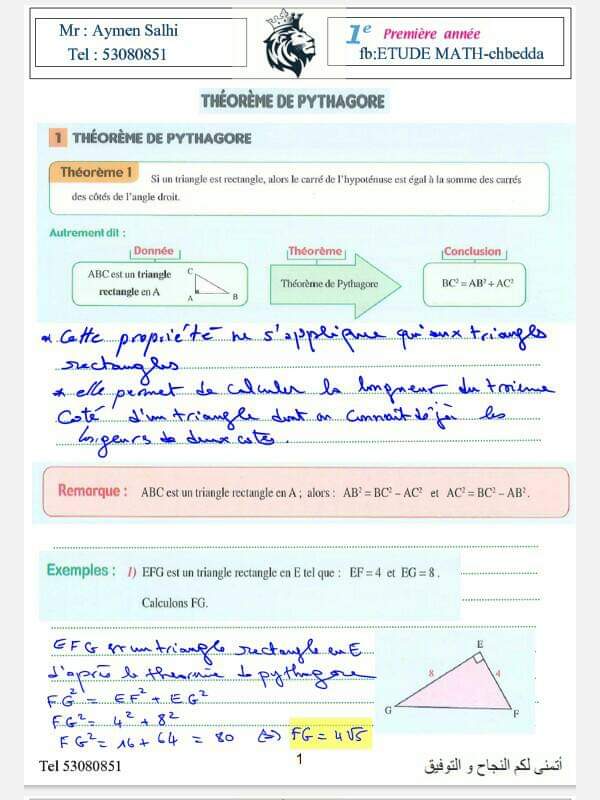 Mr : Aymen Salhi
Tel : 53080851
1e Première année
fb:ETUDE MATH-chbedda
THÉORÈME DE PYTHAGORE
1 THÉORÈME DE PYTHAGORE
Théorème 1
Si un triangle est rectangle, alors le carré de l'hypoténuse est égal à la somme des carrés
des côtés de l'angle droit.
Autrement dit :
Donnée
Théorème
Conclusion
ABC est un triangle
rectangle en A
C
A
B
Théorème de Pythagore
BC² = AB² + AC²
* Cette propriété ne s'applique qu'aux triangles
rectangles
* elle permet de calculer la longueur du troieme
Coté d'un triangle dont on connait déjà les
longeurs de deux cotés.
Remarque : ABC est un triangle rectangle en A ; alors : AB² = BC² – AC² et AC² = BC² – AB².
Exemples : 1) EFG est un triangle rectangle en E tel que : EF = 4 et EG = 8 .
Calculons FG.
EFG est un triangle rectangle en E
d'après le theorme de pythagore
FG² = EF² + EG²
FG² = 4² + 8²
FG² = 16 + 64 = 80 (=) FG = 4√5
E
8
4
G
F
Tel 53080851
1
أتمنى لكم النجاح و التوفيق